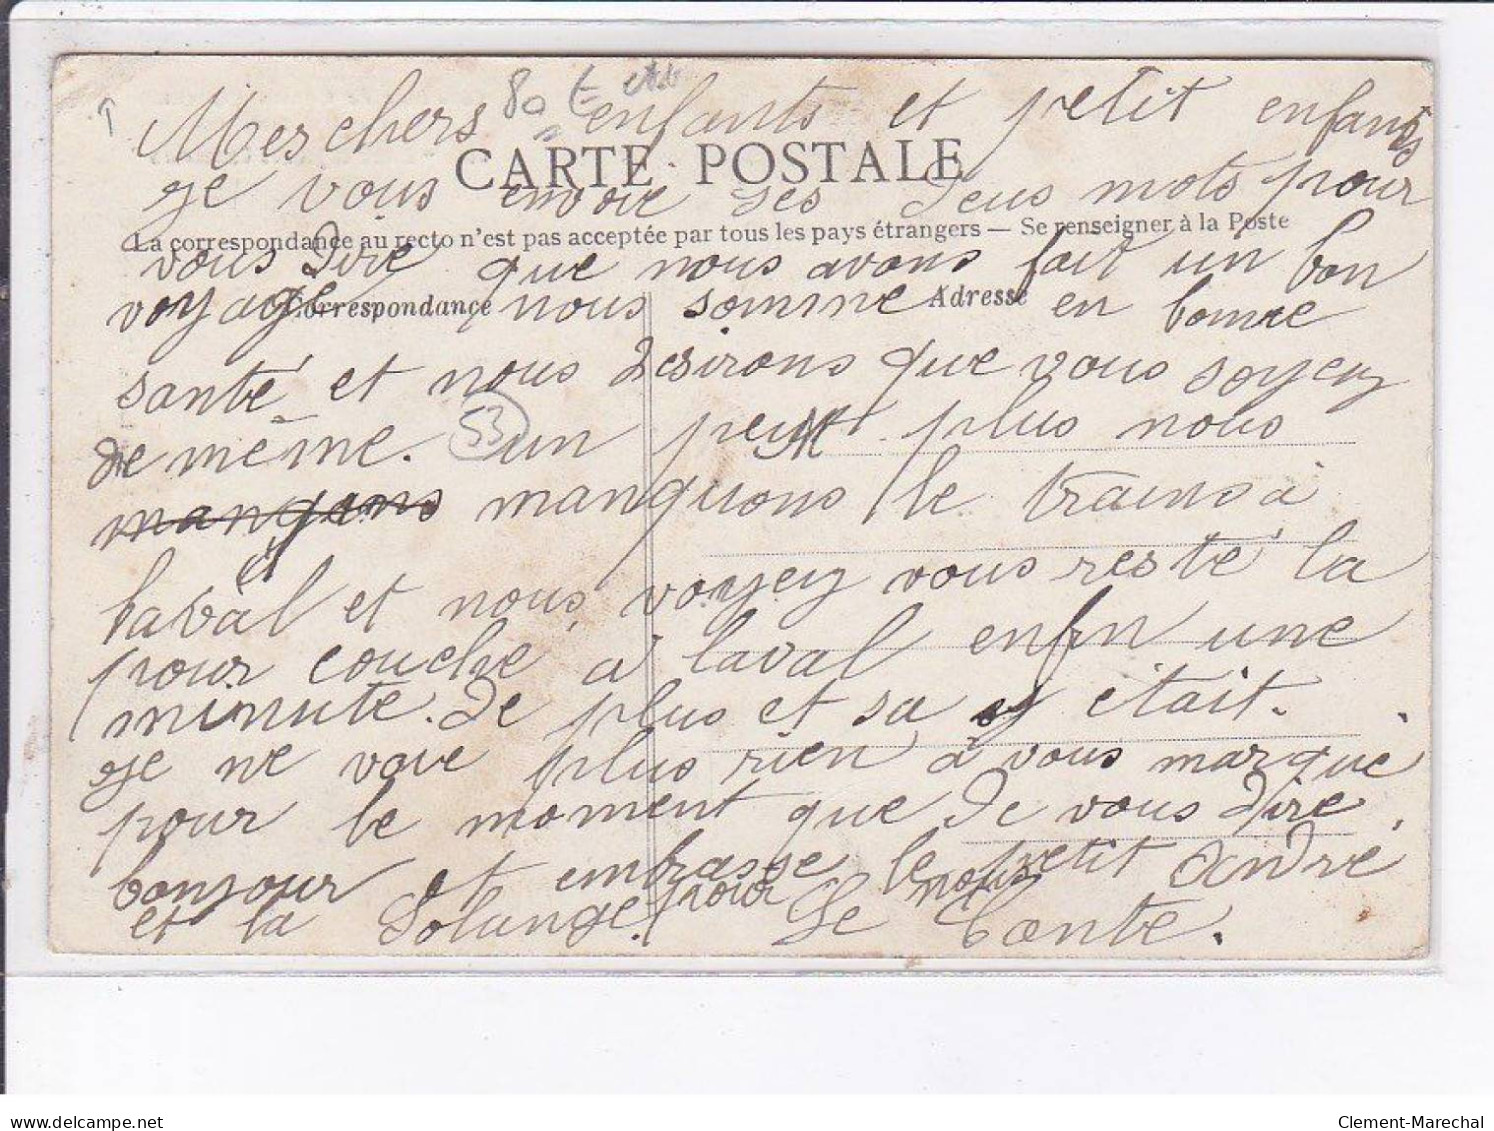 80 €
Mes chers enfants et petit enfants
CARTE POSTALE
je vous envoie ses deus mots pour
La correspondance au recto n'est pas acceptée par tous les pays étrangers — Se renseigner à la Poste
vous dire que nous avons fait un bon
Correspondance Adresse
voyage nous somme en bonne
santé et nous desirons que vous soyez
de même. 53 un peut plus nous
manquons le trains à
laval et nous voyez vous resté la
pour couche a laval enfin une
minute de plus et sa y etait.
je ne voie plus rien à vous marqué
pour le moment que de vous dire
bonjour et embrasse le petit andré
et la Solange. pour nous
Le Comte.
delcampe.net
Clement-Marechal